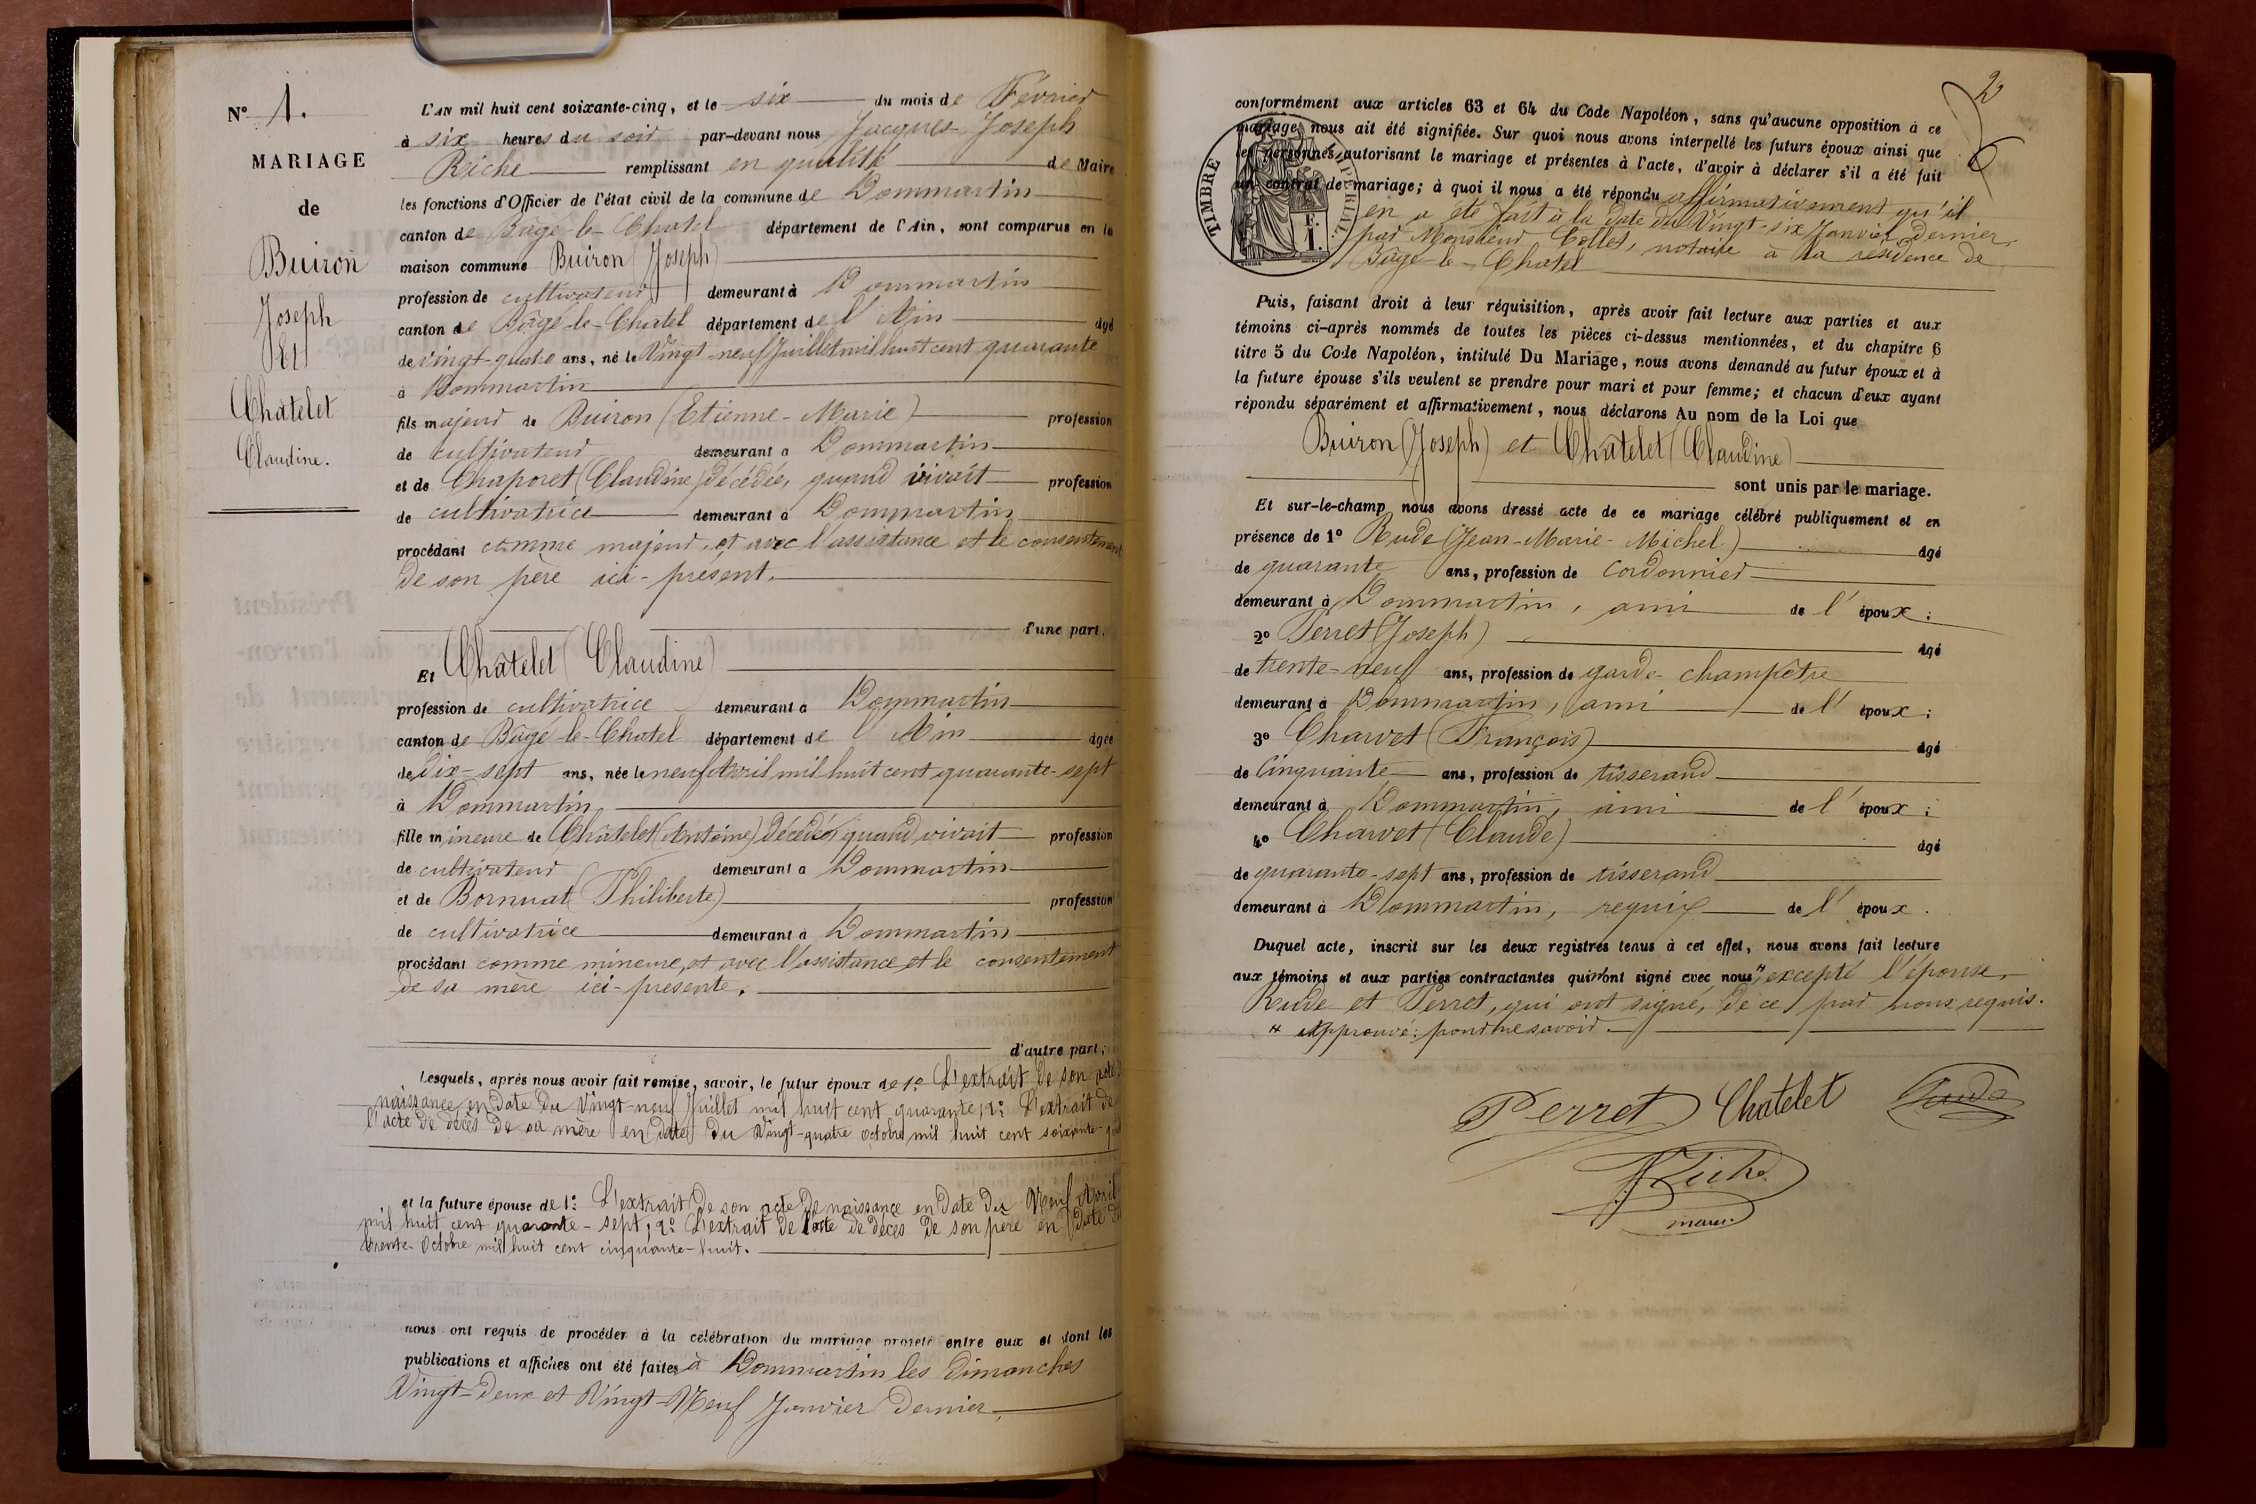 N° 1.
MARIAGE
de
Buiron
Joseph
Et
Châtelet
Claudine.
L'AN mil huit cent soixante-cinq, et le six du mois de Février
à six heures du soir par-devant nous Jacques-Joseph
Riche remplissant en qualité de Maire
les fonctions d'Officier de l'état civil de la commune de Dommartin
canton de Bâgé-le-Chatel département de l'Ain, sont comparus en la
maison commune Buiron (Joseph)
profession de cultivateur demeurant à Dommartin
canton de Bâgé-le-Chatel département de l'Ain âgé
de vingt-quatre ans, né le Vingt-neuf Juillet mil huit cent quarante
à Dommartin
fils majeur de Buiron (Etienne-Marie) profession
de cultivateur demeurant à Dommartin
et de Chaporet (Claudine) décédée, quand vivait profession
de cultivatrice demeurant à Dommartin
procédant comme majeur, et avec l'assistance et le consentement
de son père ici-présent.
d'une part.
Et Châtelet (Claudine)
profession de cultivatrice demeurant à Dommartin
canton de Bâgé-le-Chatel département de l'Ain âgée
de dix-sept ans, née le neuf Avril mil huit cent quarante-sept
à Dommartin
fille mineure de Châtelet (Antoine) décédé, quand vivait profession
de cultivateur demeurant à Dommartin
et de Bornuat (Philiberte) profession
de cultivatrice demeurant à Dommartin
procédant comme mineure, et avec l'assistance et le consentement
de sa mère ici-présente.
d'autre part;
Lesquels, après nous avoir fait remise, savoir, le futur époux de 1.° L'extrait de son acte de
naissance en date du Vingt-neuf Juillet mil huit cent quarante, 2.° L'extrait de
l'acte de décès de sa mère en date du Vingt-quatre octobre mil huit cent soixante-
et la future épouse de 1.° L'extrait de son acte de naissance en date du Neuf Avril
mil huit cent quarante-sept, 2.° L'extrait de l'acte de décès de son père en date du
trente Octobre mil huit cent cinquante-huit.
nous ont requis de procéder à la célébration du mariage projeté entre eux et dont les
publications et affiches ont été faites à Dommartin les Dimanches
Vingt-Deux et Vingt-Neuf Janvier Dernier,
2
TIMBRE IMPÉRIAL
F.
1.
conformément aux articles 63 et 64 du Code Napoléon, sans qu'aucune opposition à ce
mariage nous ait été signifiée. Sur quoi nous avons interpellé les futurs époux ainsi que
les personnes autorisant le mariage et présentes à l'acte, d'avoir à déclarer s'il a été fait
un contrat de mariage; à quoi il nous a été répondu affirmativement qu'il
en a été fait à la date du Vingt-six Janvier dernier,
par Monsieur Collet, notaire à la résidence de
Bâgé-le-Chatel
Puis, faisant droit à leur réquisition, après avoir fait lecture aux parties et aux
témoins ci-après nommés de toutes les pièces ci-dessus mentionnées, et du chapitre 6
titre 5 du Code Napoléon, intitulé Du Mariage, nous avons demandé au futur époux et à
la future épouse s'ils veulent se prendre pour mari et pour femme; et chacun d'eux ayant
répondu séparément et affirmativement, nous déclarons Au nom de la Loi que
Buiron (Joseph) et Châtelet (Claudine)
sont unis par le mariage.
Et sur-le-champ nous avons dressé acte de ce mariage célébré publiquement et en
présence de 1° Rude (Jean-Marie-Michel) âgé
de quarante ans, profession de cordonnier
demeurant à Dommartin, ami de l'époux;
2° Perret (Joseph) âgé
de trente-neuf ans, profession de garde-champêtre
demeurant à Dommartin, ami de l'époux;
3° Charvet (François) âgé
de Cinquante ans, profession de tisserand
demeurant à Dommartin, ami de l'époux;
4° Charvet (Claude) âgé
de quarante-sept ans, profession de tisserand
demeurant à Dommartin, requis de l'époux.
Duquel acte, inscrit sur les deux registres tenus à cet effet, nous avons fait lecture
aux témoins et aux parties contractantes qui n'ont signé avec nous, excepté l'épouse,
Rude et Perret, qui ont signé, de ce par nous requis.
Approuvé: pour ne savoir.
Perret Chatelet Rude
Riche
maire.